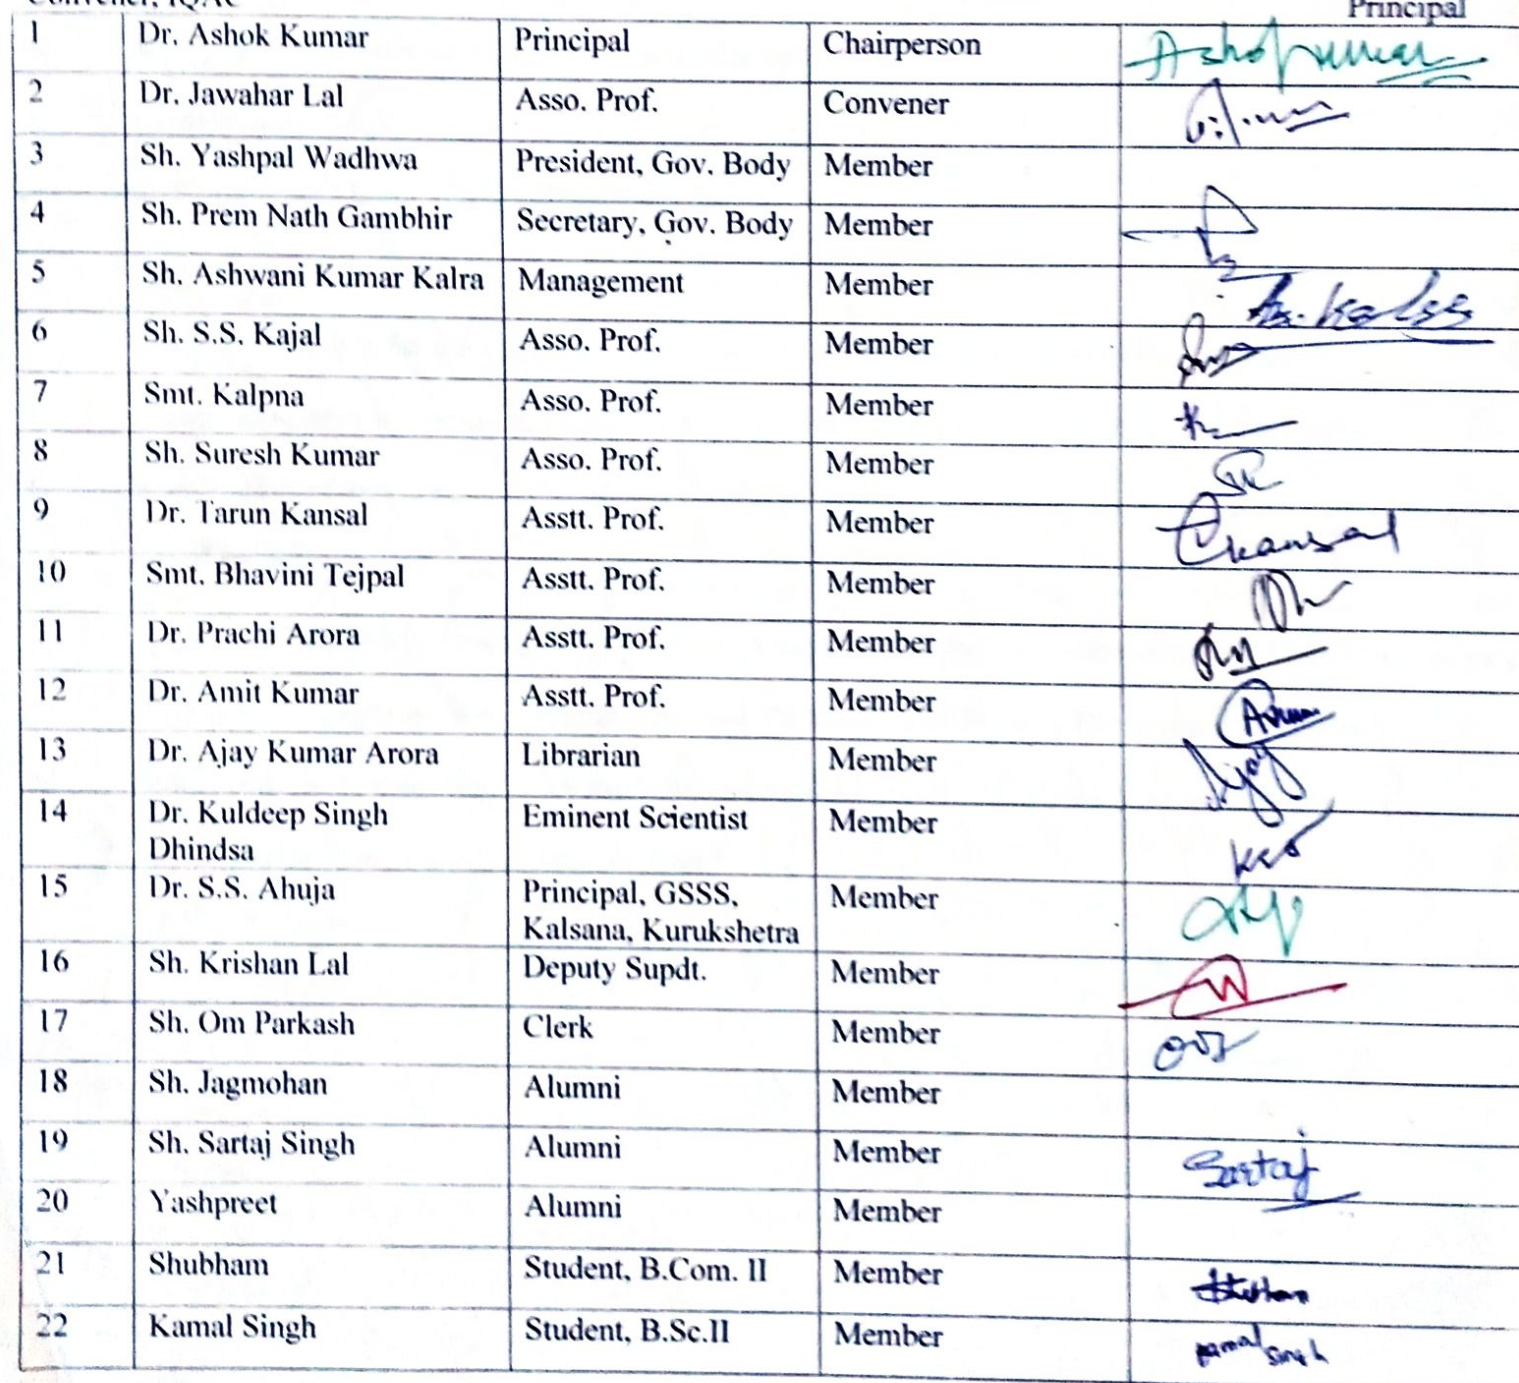 Convener, IQAC Principal
1 Dr. Ashok Kumar Principal Chairperson Ashokkumar
2 Dr. Jawahar Lal Asso. Prof. Convener
3 Sh. Yashpal Wadhwa President, Gov. Body Member
4 Sh. Prem Nath Gambhir Secretary, Gov. Body Member
5 Sh. Ashwani Kumar Kalra Management Member
6 Sh. S.S. Kajal Asso. Prof. Member
7 Smt. Kalpna Asso. Prof. Member
8 Sh. Suresh Kumar Asso. Prof. Member
9 Dr. Tarun Kansal Asstt. Prof. Member
10 Smt. Bhavini Tejpal Asstt. Prof. Member
11 Dr. Prachi Arora Asstt. Prof. Member
12 Dr. Amit Kumar Asstt. Prof. Member
13 Dr. Ajay Kumar Arora Librarian Member Ajay
14 Dr. Kuldeep Singh Eminent Scientist Member
Dhindsa
15 Dr. S.S. Ahuja Principal, GSSS, Member
Kalsana, Kurukshetra
16 Sh. Krishan Lal Deputy Supdt. Member
17 Sh. Om Parkash Clerk Member
18 Sh. Jagmohan Alumni Member
19 Sh. Sartaj Singh Alumni Member Sartaj
20 Yashpreet Alumni Member
21 Shubham Student, B.Com. II Member
22 Kamal Singh Student, B.Sc.II Member Kamal Singh